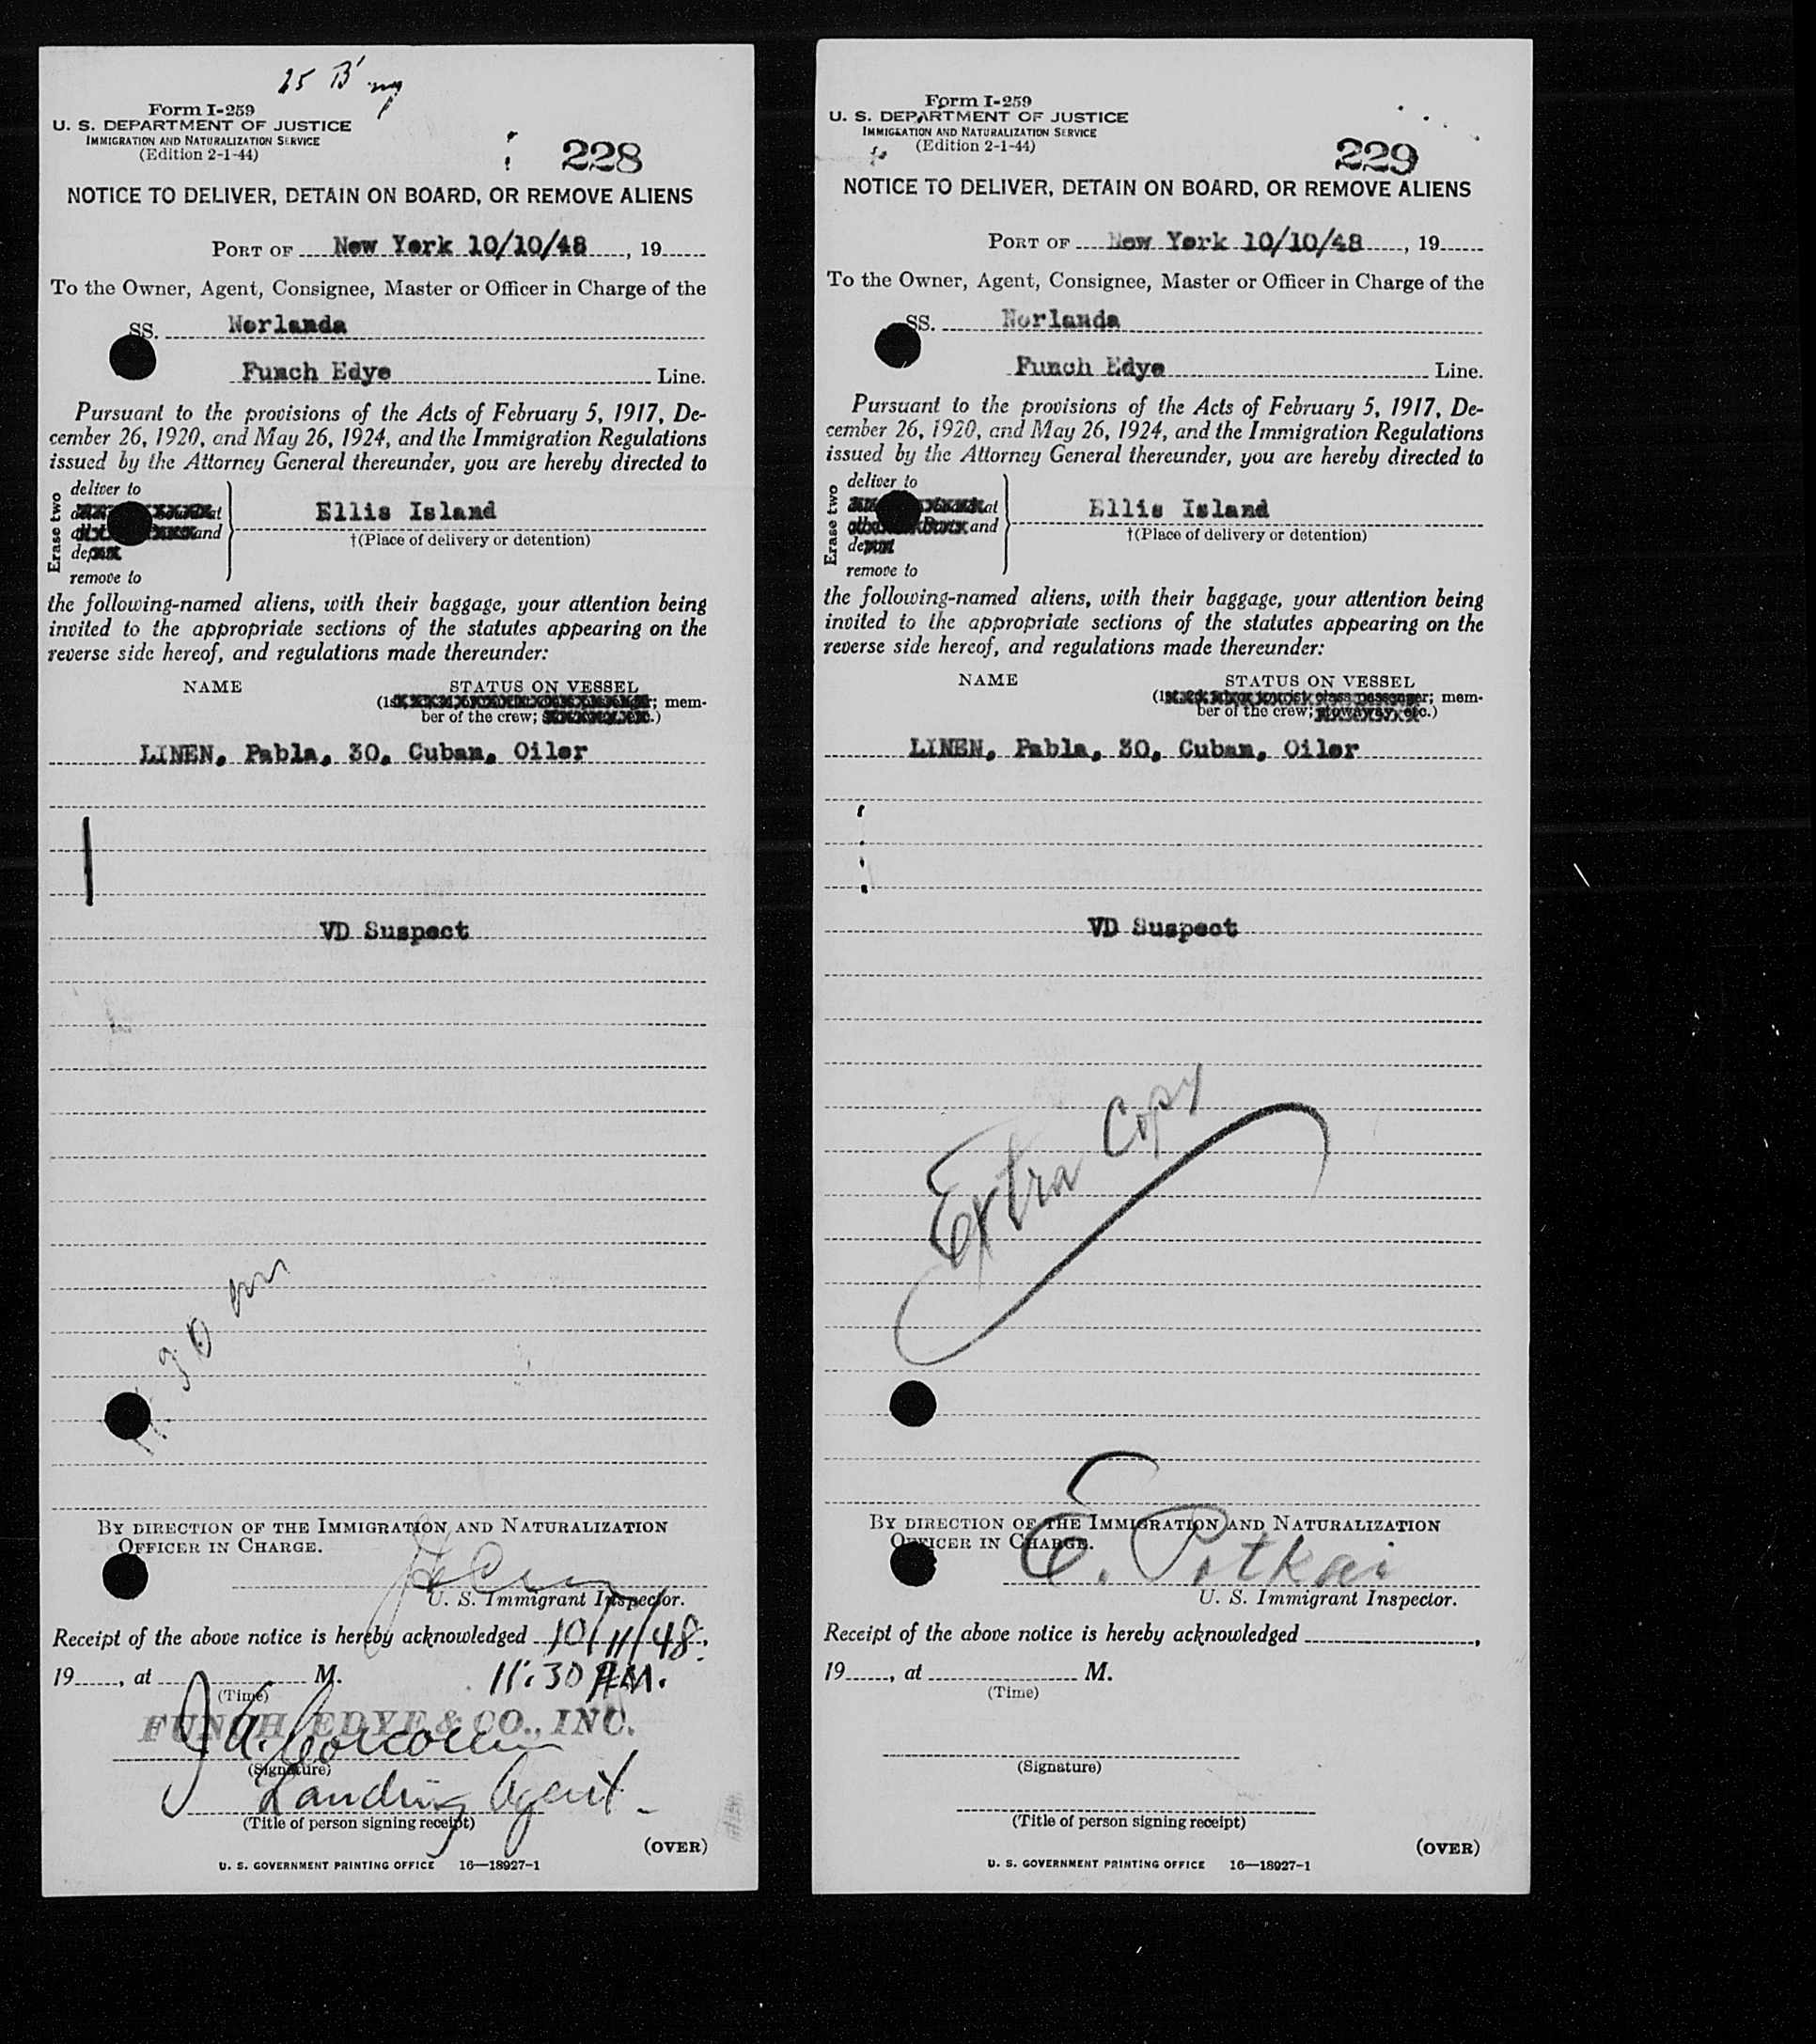 Form I-259
U. S. DEPARTMENT OF JUSTICE
IMMIGRATION AND NATURALIZATION SERVICE
(Edition 2-1-44)
228
NOTICE TO DELIVER, DETAIN ON BOARD, OR REMOVE ALIENS
PORT OF New York 10/10/48, 19
To the Owner, Agent, Consignee, Master or Officer in Charge of the
SS. Norlanda
Funch Edye Line.
Pursuant to the provisions of the Acts of February 5, 1917, De-
cember 26, 1920, and May 26, 1924, and the Immigration Regulations
issued by the Attorney General thereunder, you are hereby directed to
Erase two
deliver to
at
and
remove to
Ellis Island
†(Place of delivery or detention)
the following-named aliens, with their baggage, your attention being
invited to the appropriate sections of the statutes appearing on the
reverse side hereof, and regulations made thereunder:
NAME STATUS ON VESSEL
; mem-
ber of the crew;
LINEN, Pabla, 30, Cuban, Oiler
VD Suspect
BY DIRECTION OF THE IMMIGRATION AND NATURALIZATION
OFFICER IN CHARGE.
U. S. Immigrant Inspector.
Receipt of the above notice is hereby acknowledged 10/11/48,
19, at M. 11:30 AM.
(Time)
FUNCH, EDYE & CO., INC.
(Signature)
Landing Agent
(Title of person signing receipt)
(OVER)
U. S. GOVERNMENT PRINTING OFFICE 16—18927-1
Form I-259
U. S. DEPARTMENT OF JUSTICE
IMMIGRATION AND NATURALIZATION SERVICE
(Edition 2-1-44)
229
NOTICE TO DELIVER, DETAIN ON BOARD, OR REMOVE ALIENS
PORT OF New York 10/10/48, 19
To the Owner, Agent, Consignee, Master or Officer in Charge of the
SS. Norlanda
Funch Edye Line.
Pursuant to the provisions of the Acts of February 5, 1917, De-
cember 26, 1920, and May 26, 1924, and the Immigration Regulations
issued by the Attorney General thereunder, you are hereby directed to
Erase two
deliver to
at
and
remove to
Ellis Island
†(Place of delivery or detention)
the following-named aliens, with their baggage, your attention being
invited to the appropriate sections of the statutes appearing on the
reverse side hereof, and regulations made thereunder:
NAME STATUS ON VESSEL
class passenger; mem-
ber of the crew;
LINEN, Pabla, 30, Cuban, Oiler
VD Suspect
Extra Copy
BY DIRECTION OF THE IMMIGRATION AND NATURALIZATION
OFFICER IN CHARGE.
E. Potkai
U. S. Immigrant Inspector.
Receipt of the above notice is hereby acknowledged ,
19, at M.
(Time)
(Signature)
(Title of person signing receipt)
(OVER)
U. S. GOVERNMENT PRINTING OFFICE 16—18927-1